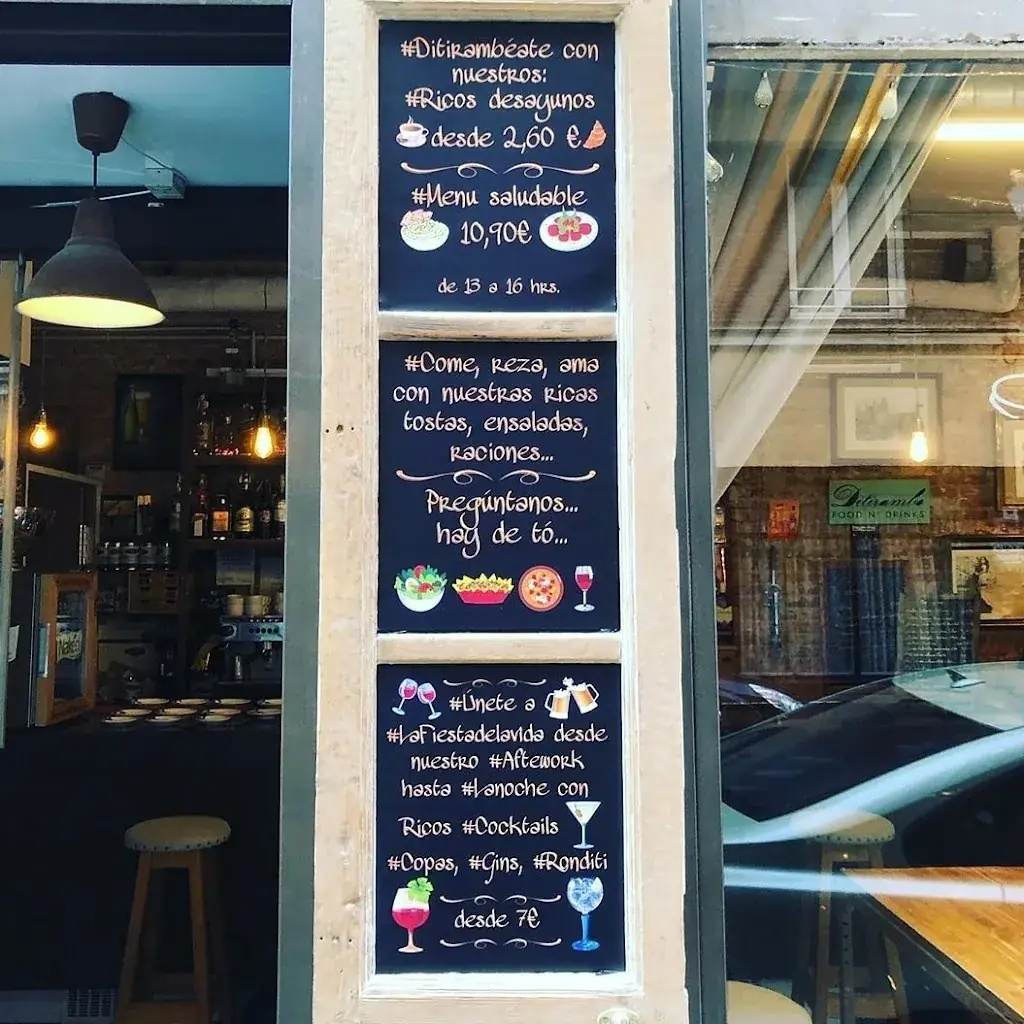 #Ditirambéate con
nuestros:
#Ricos desayunos
desde 2,60 €
#Menu saludable
10,90€
de 13 a 16 hrs.
#Come, reza, ama
con nuestras ricas
tostas, ensaladas,
raciones...
Pregúntanos...
hay de tó...
#Únete a
#LaFiestadelavida desde
nuestro #Aftework
hasta #Lanoche con
Ricos #Cocktails
#Copas, #Gins, #Ronditi
desde 7€
Ditirambo
FOOD N' DRINKS